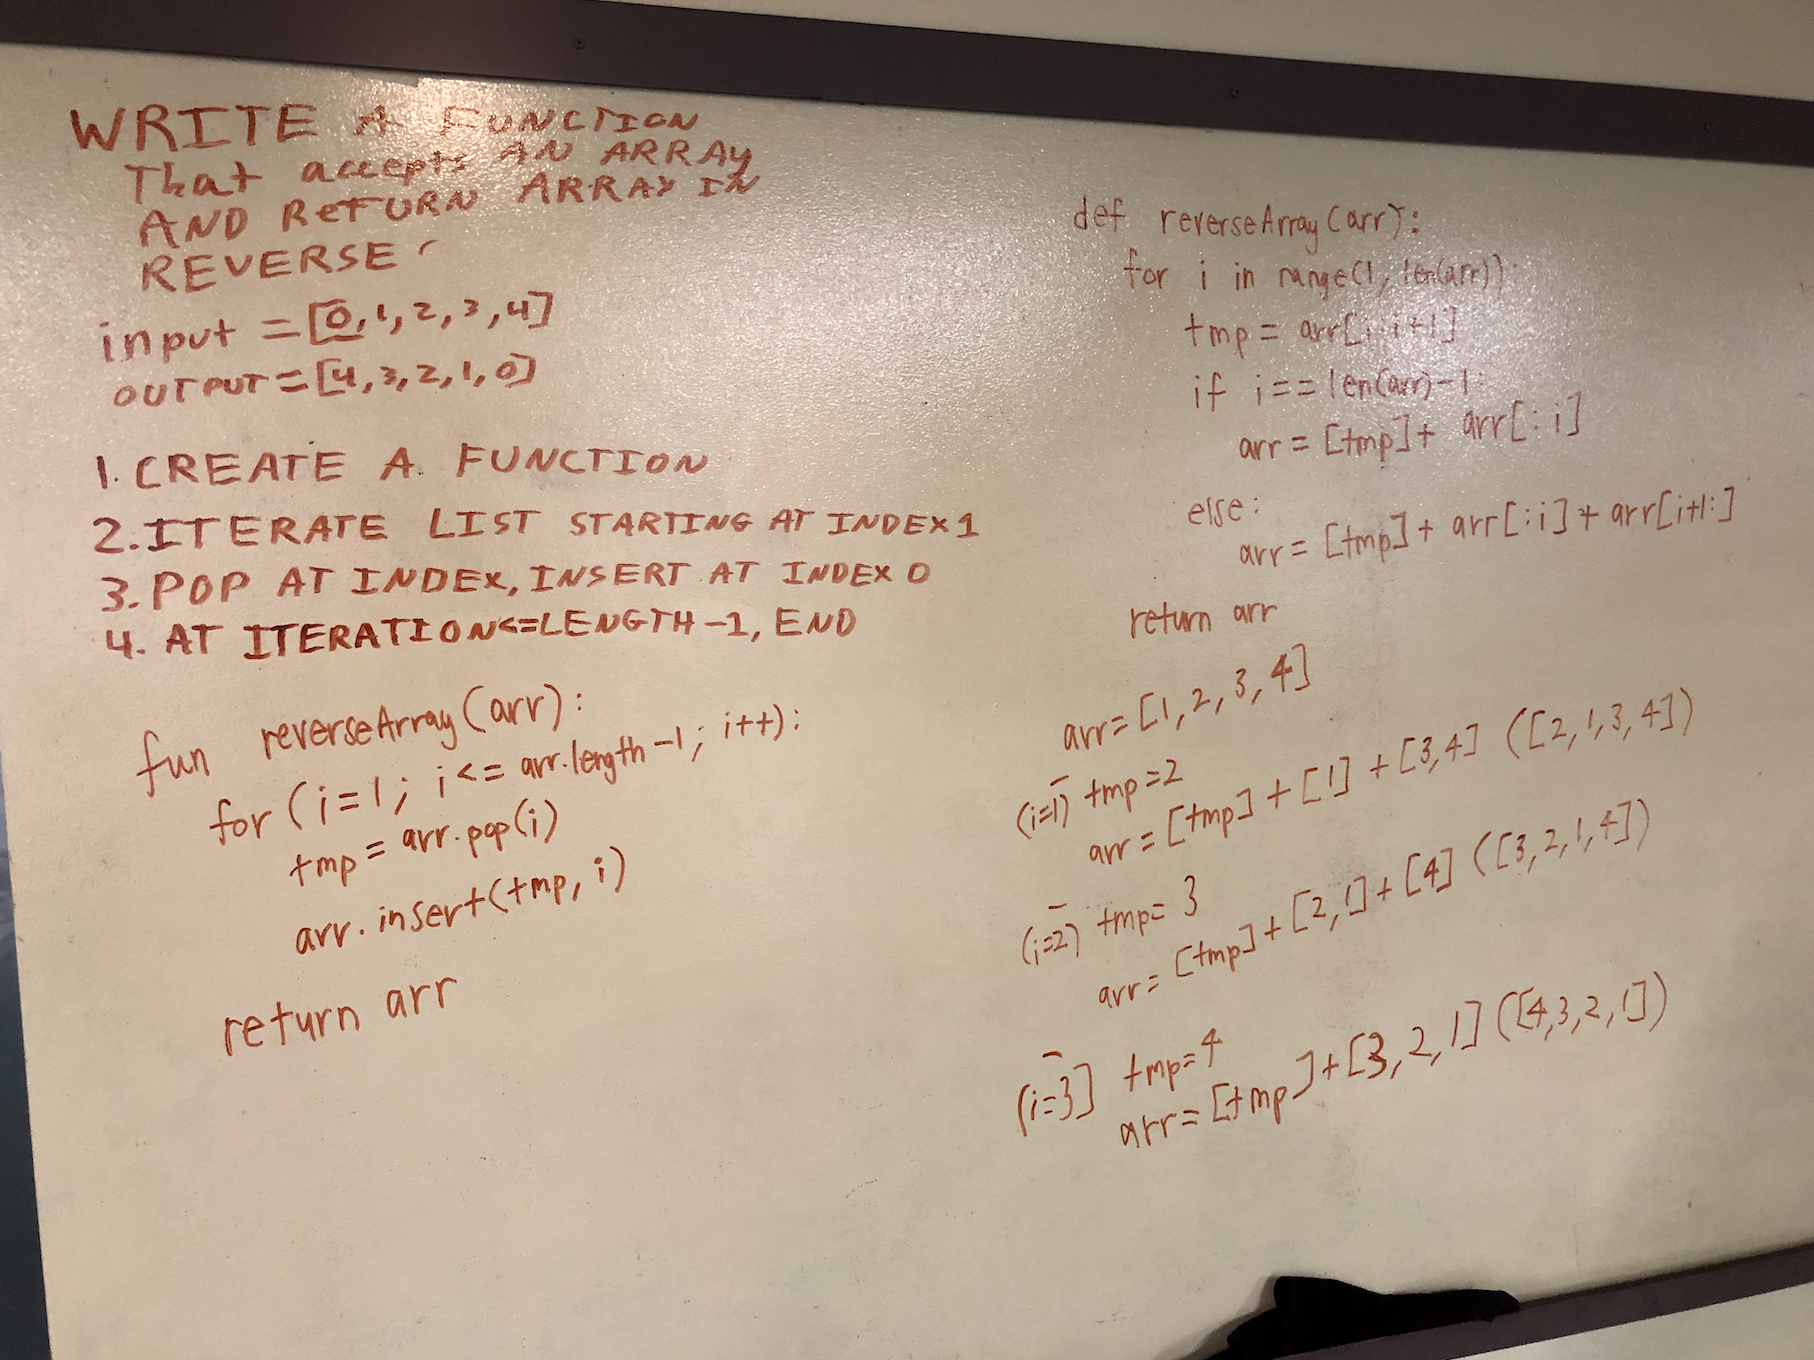 WRITE A FUNCTION
That accepts AN ARRAY
AND RETURN ARRAY IN
REVERSE
input = [0,1,2,3,4]
OUTPUT = [4,3,2,1,0]
1. CREATE A FUNCTION
2. ITERATE LIST STARTING AT INDEX 1
3. POP AT INDEX, INSERT AT INDEX 0
4. AT ITERATION<=LENGTH-1, END
fun reverseArray(arr):
for (i=1; i<= arr.length-1; i++):
tmp = arr.pop(i)
arr.insert(tmp, i)
return arr
def reverseArray(arr):
for i in range(1, len(arr)):
tmp = arr[i:i+1]
if i==len(arr)-1:
arr = [tmp]+ arr[:i]
else:
arr = [tmp]+ arr[:i]+ arr[i+1:]
return arr
arr=[1,2,3,4]
(i=1) tmp=2
arr = [tmp] + [1] + [3,4] ([2,1,3,4])
(i=2) tmp= 3
arr= [tmp]+[2,1]+[4] ([3,2,1,4])
(i=3] tmp=4
arr=[tmp]+[3,2,1] ([4,3,2,1])